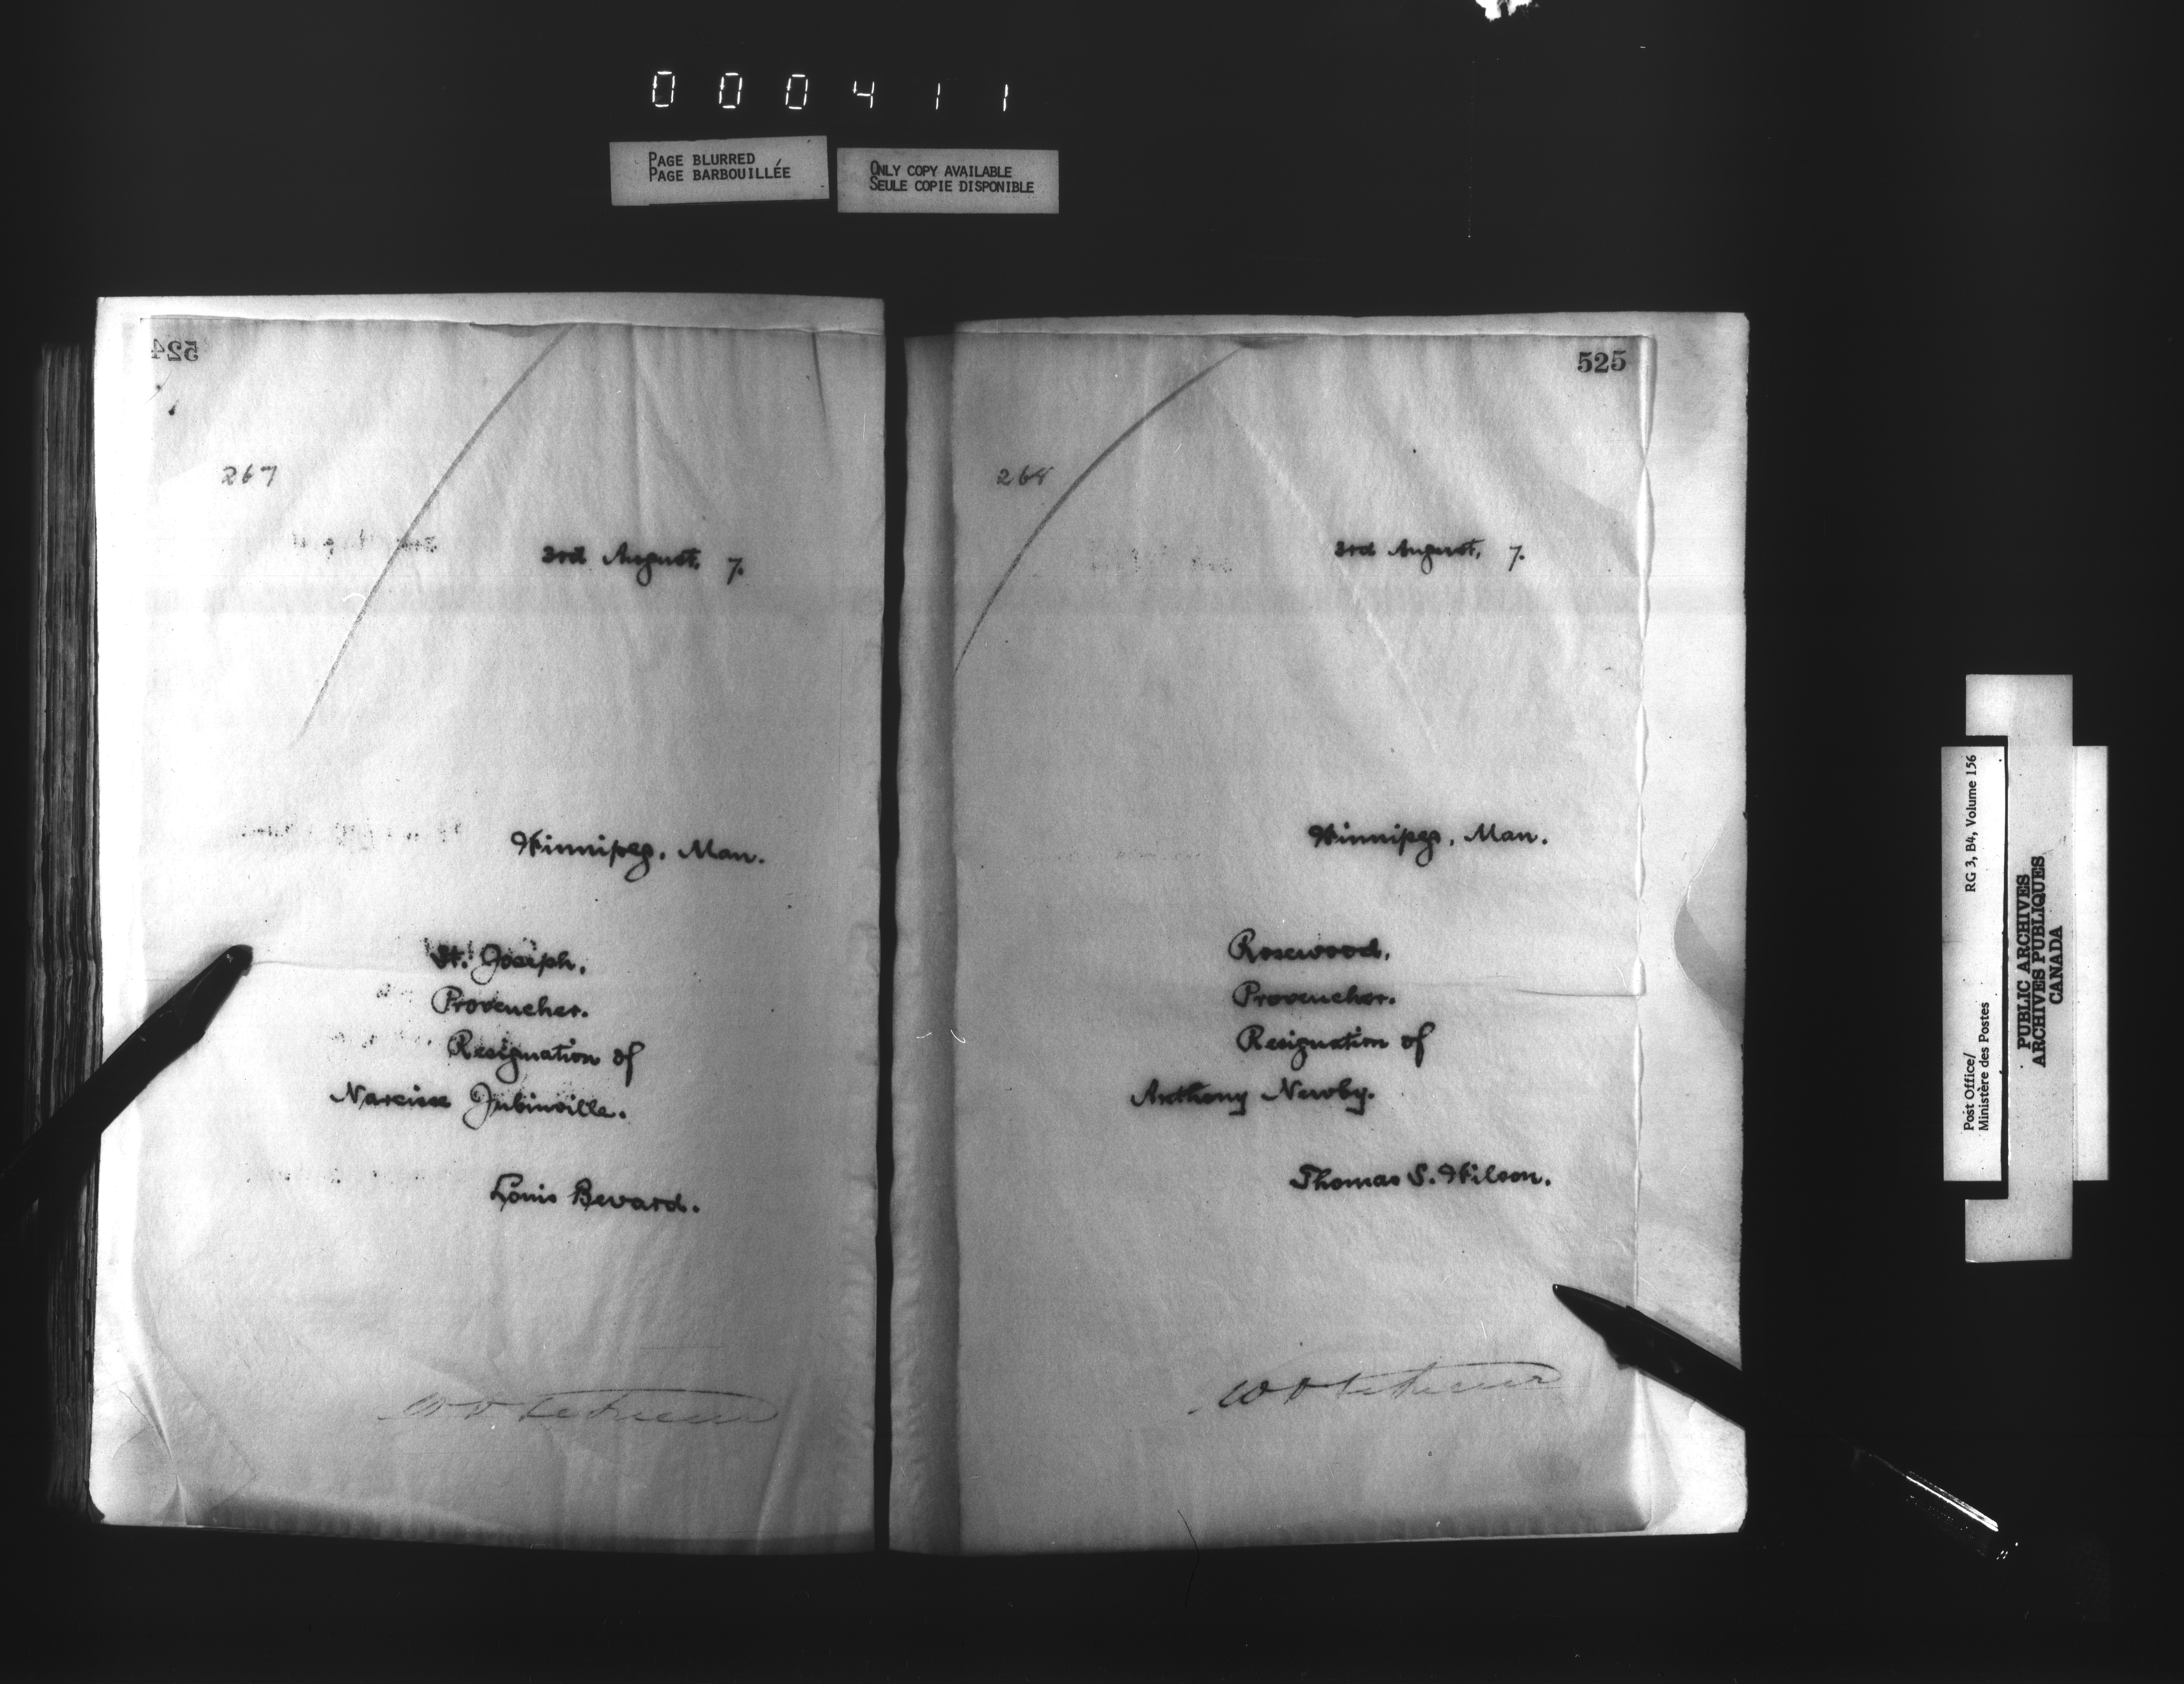 000411
PAGE BLURRED
PAGE BARBOUILLÉE
ONLY COPY AVAILABLE
SEULE COPIE DISPONIBLE
524
267
3rd August, 7.
Winnipeg, Man.
St. Joseph,
Provencher.
Resignation of
Narcisse Jubinville.
Louis Bevard.
525
268
3rd August, 7.
Winnipeg, Man.
Rosewood,
Provencher.
Resignation of
Anthony Newby.
Thomas S. Wilson.
Post Office/
Ministère des Postes
RG 3, B4, Volume 156
PUBLIC ARCHIVES
ARCHIVES PUBLIQUES
CANADA